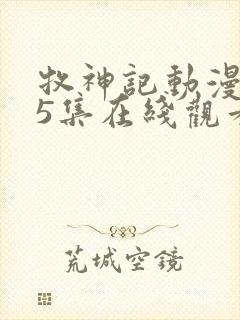 牧神記動漫
5集在綫觀看
荒城空鏡